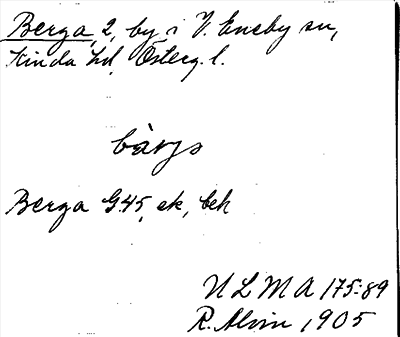 Berga, 2, by i V. Eneby sn,
Kinda hd, Österg. l.
bàrjs
Berga G45, ek, bek
ULMA 175:89
R. Alvin 1905